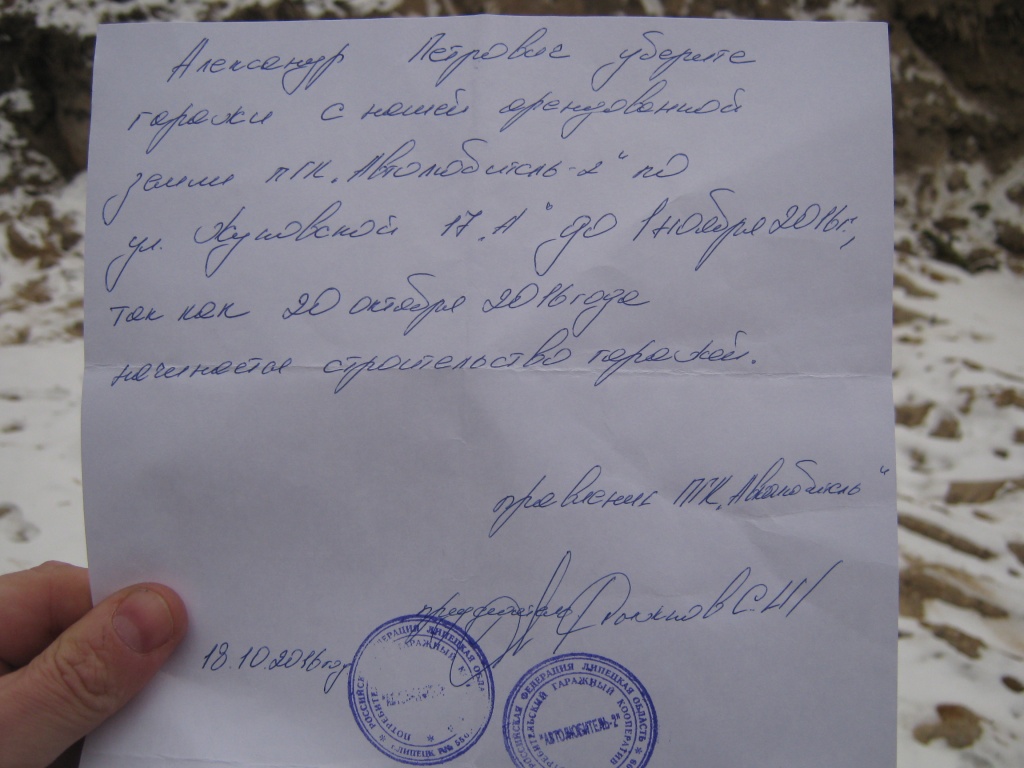 Александр Петрович уберите
гаражи с нашей арендованной
земли ПГК „Автолюбитель-2“ по
ул. Жуковской 17 „А“ до 1 ноября 2016г.,
так как 20 октября 2016 года
начинается строительство гаражей.
правление ПГК „Автолюбитель“
председатель
18.10.2016 год
ЛИПЕЦКАЯ ГАРАЖНЫЙ
РОССИЙСКАЯ ФЕДЕРАЦИЯ ЛИПЕЦКАЯ ОБЛАСТЬ
ПОТРЕБИТЕЛЬСКИЙ ГАРАЖНЫЙ КООПЕРАТИВ
"АВТОЛЮБИТЕЛЬ-2"